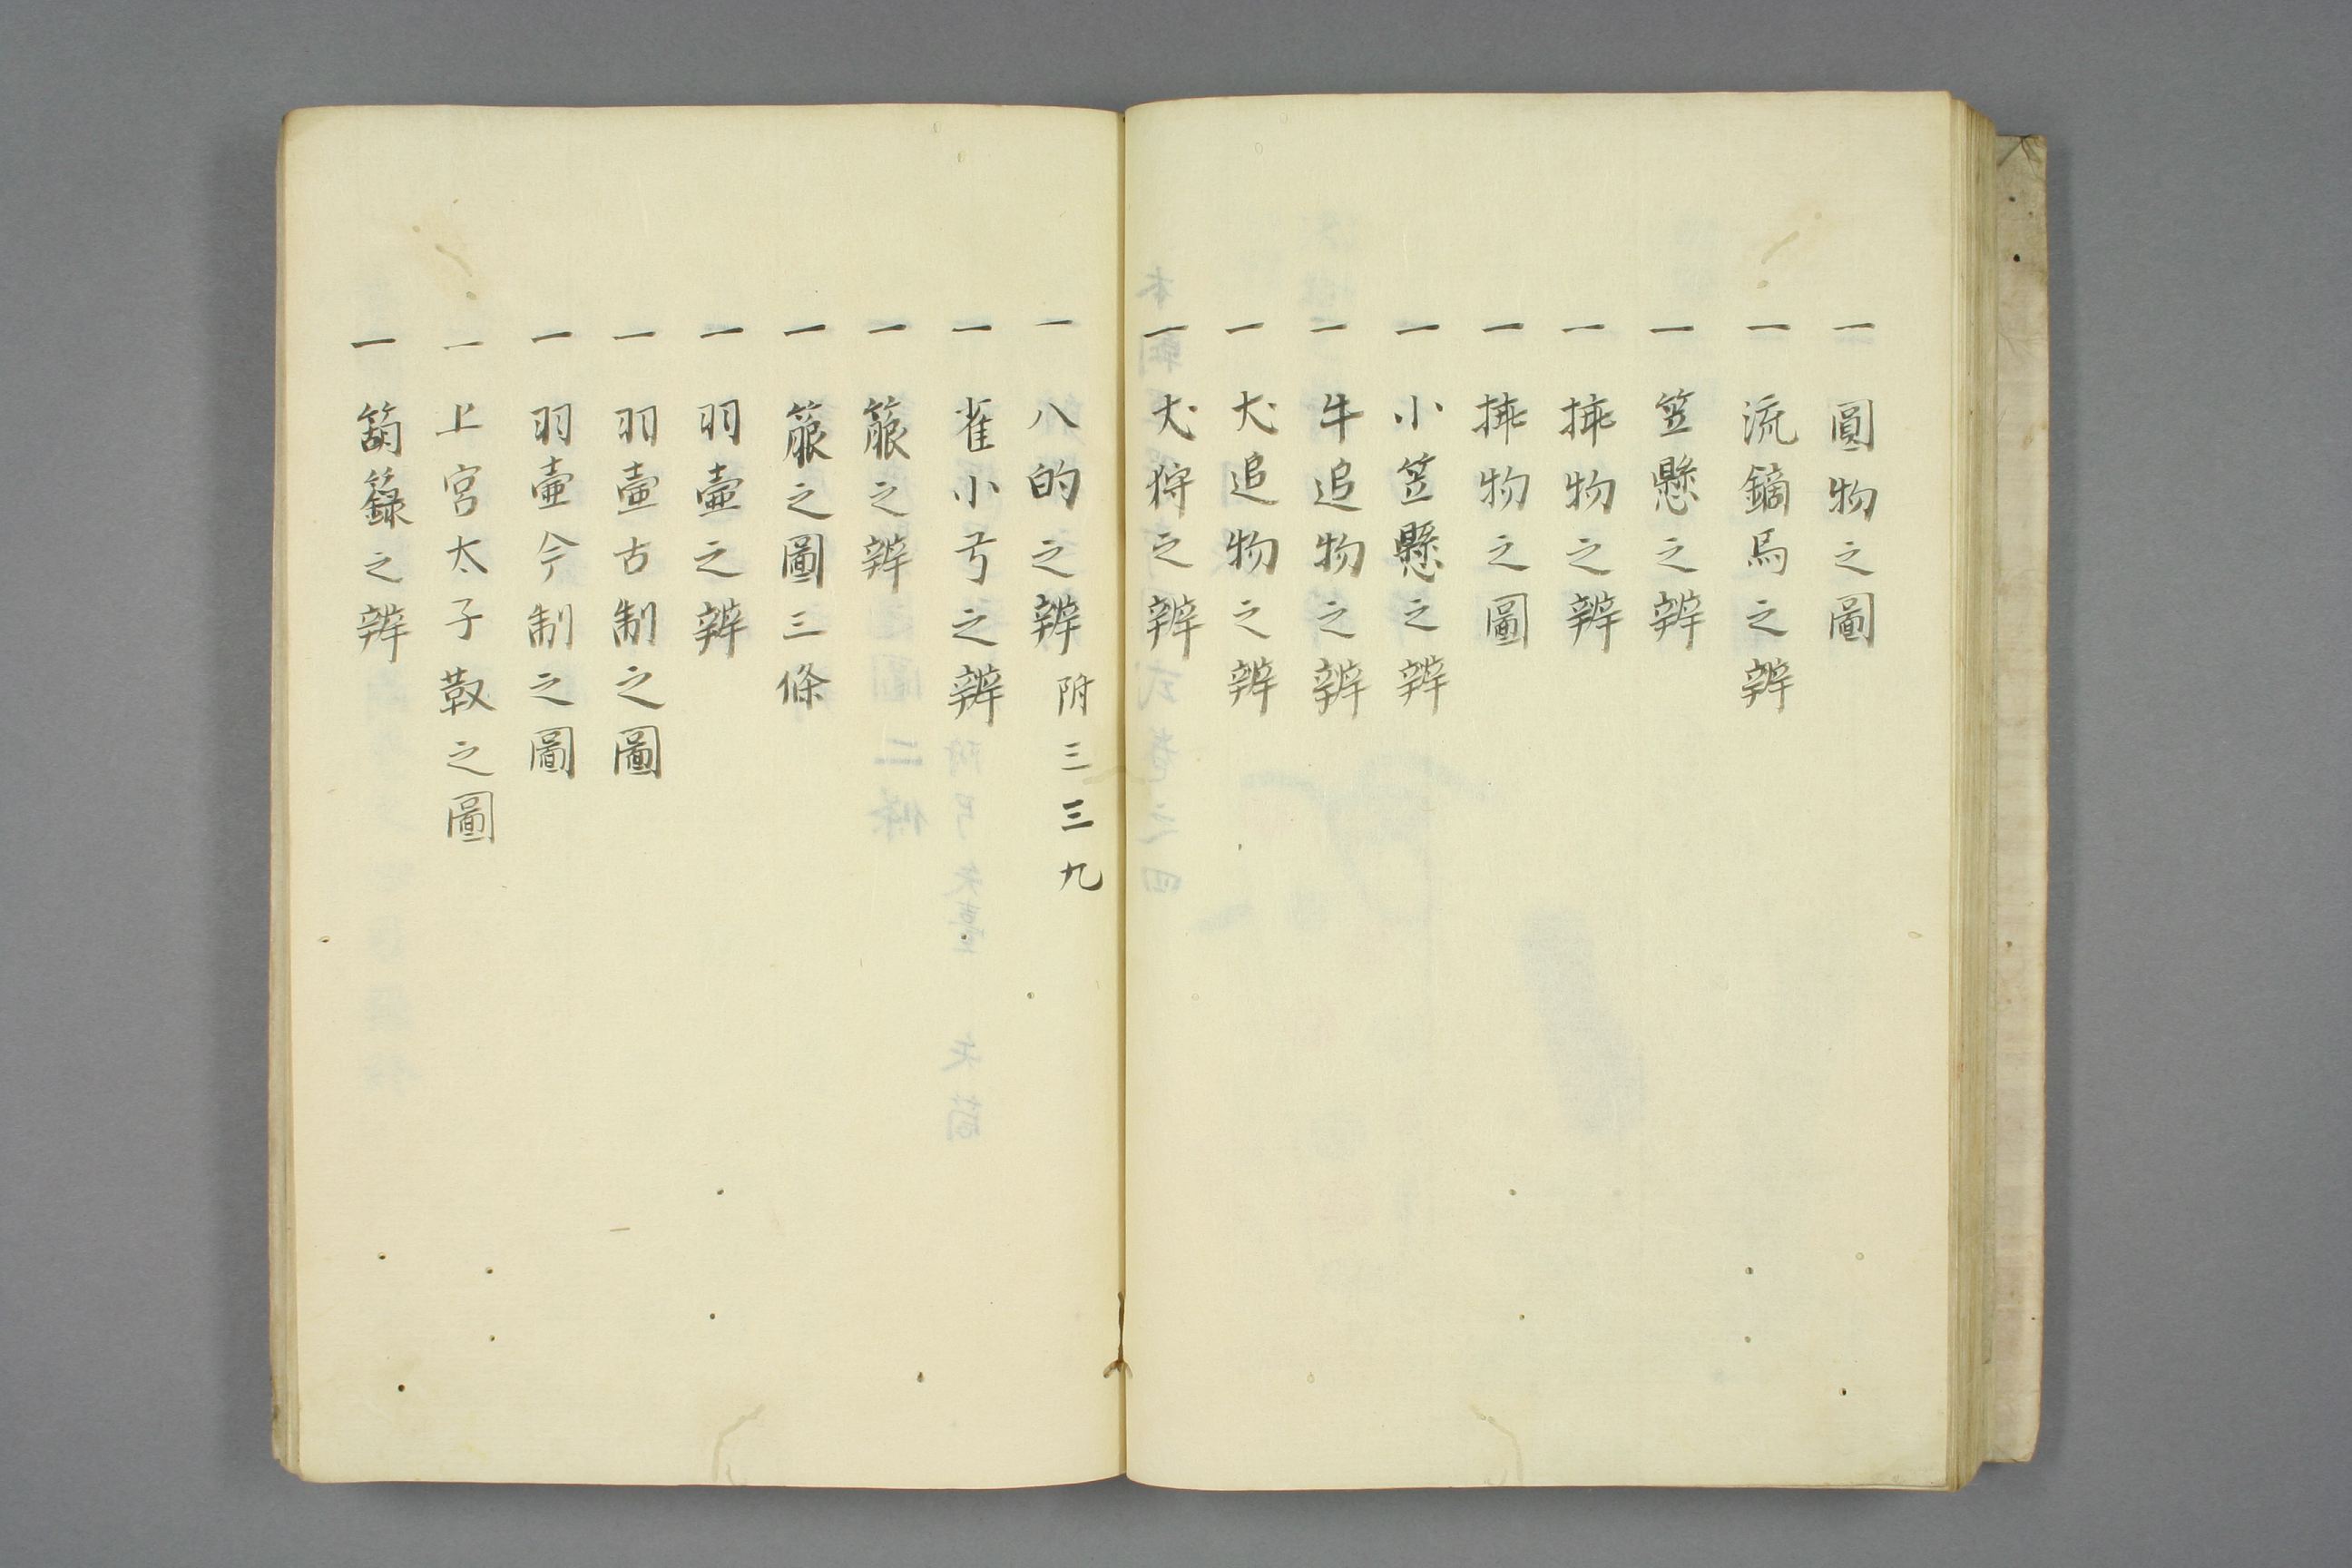 一 圓物之圖
一 流鏑馬之辨
一 笠懸之辨
一 挿物之辨
一 挿物之圖
一 小笠懸之辨
一 牛追物之辨
一 犬追物之辨
一 犬狩之辨
一 八的之辨 附三三九
一 雀小弓之辨
一 箙之辨
一 箙之圖三條
一 羽壷之辨
一 羽壷古制之圖
一 羽壷今制之圖
一 上宮太子靫之圖
一 箶簶之辨